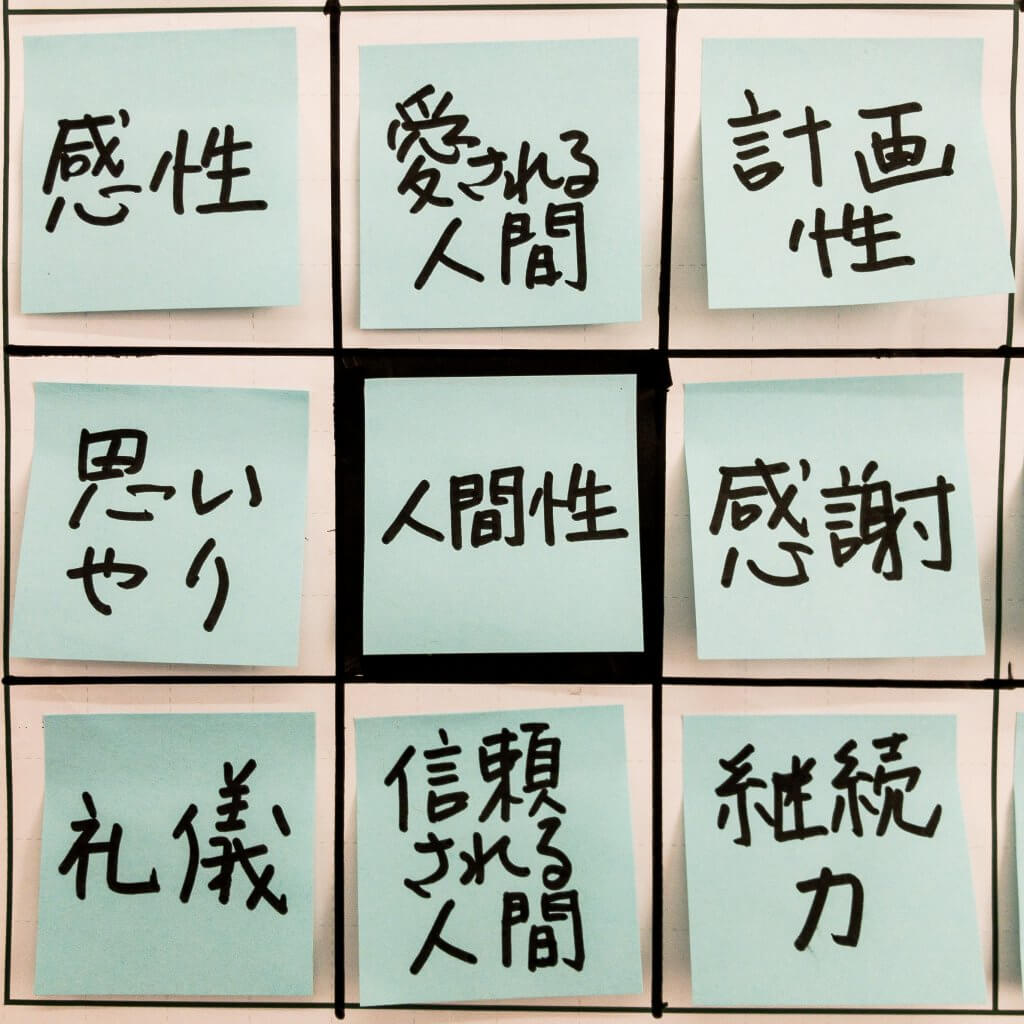 感性
愛される
人間
計画
性
思い
やり
人間性
感謝
礼儀
信頼
される
人間
継続
力